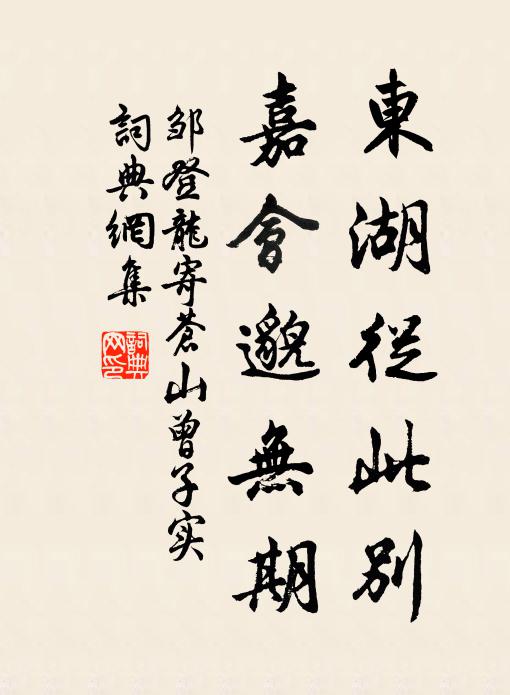 東湖從此別
嘉會邈無期
邹登龍寄蒼山曾子实
詞典網集
詞典網印